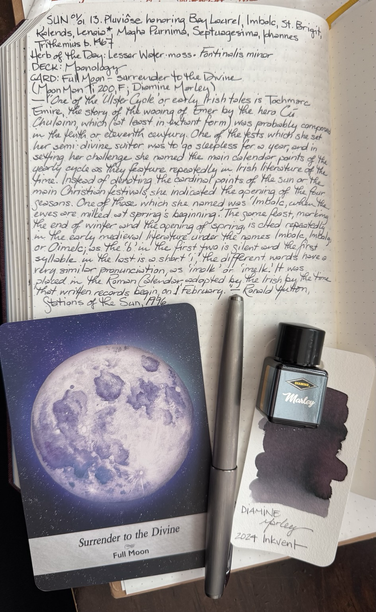 SUN 01/2, 13. Pluviôse honoring Bay Laurel, Imbolc, St. Brigit,
Kalends, Lenaia*, Magha Purnima, Septuagesima, Johannes
Trithemius b. 1462
Herb of the Day: Lesser Water-moss - Fontinalis minor
DECK: Moonology
CARD: Full Moon - Surrender to the Divine
(Moon Man Ti 200, F; Diamine Marley)
— "One of the Ulster Cycle of early Irish tales is Tochmarc
Emire, the story of the wooing of Emer by the hero Cú
Chulainn which (at least in extant form) was probably composed
in the tenth or eleventh century. One of the tests which she set
her semi-divine suitor was to go sleepless for a year, and in
setting her challenge she named the main calendar points of the
yearly cycle as they feature repeatedly in Irish literature of the
time. Instead of denoting the cardinal points of the sun or the
main Christian festivals she indicated the opening of the four
seasons. One of those which she named was 'Imbolc, when the
ewes are milked at spring's beginning'. The same feast, marking
the end of winter and the opening of spring, is cited repeatedly
in the early medieval literature under the names Imbolc, Imbolg
or Óimelc; as the 'b' in the first two is silent and the first
syllable in the last is a short 'i', the different words have a
very similar pronunciation, as 'imolk' or 'imelk'. It was
placed in the Roman calendar adopted by the Irish by the time
that written records begin, on 1 February." — Ronald Hutton,
Stations of the Sun, 1996
Surrender to the Divine
Full Moon
DIAMINE
Marley
DIAMINE
Marley
2024 Inkvent